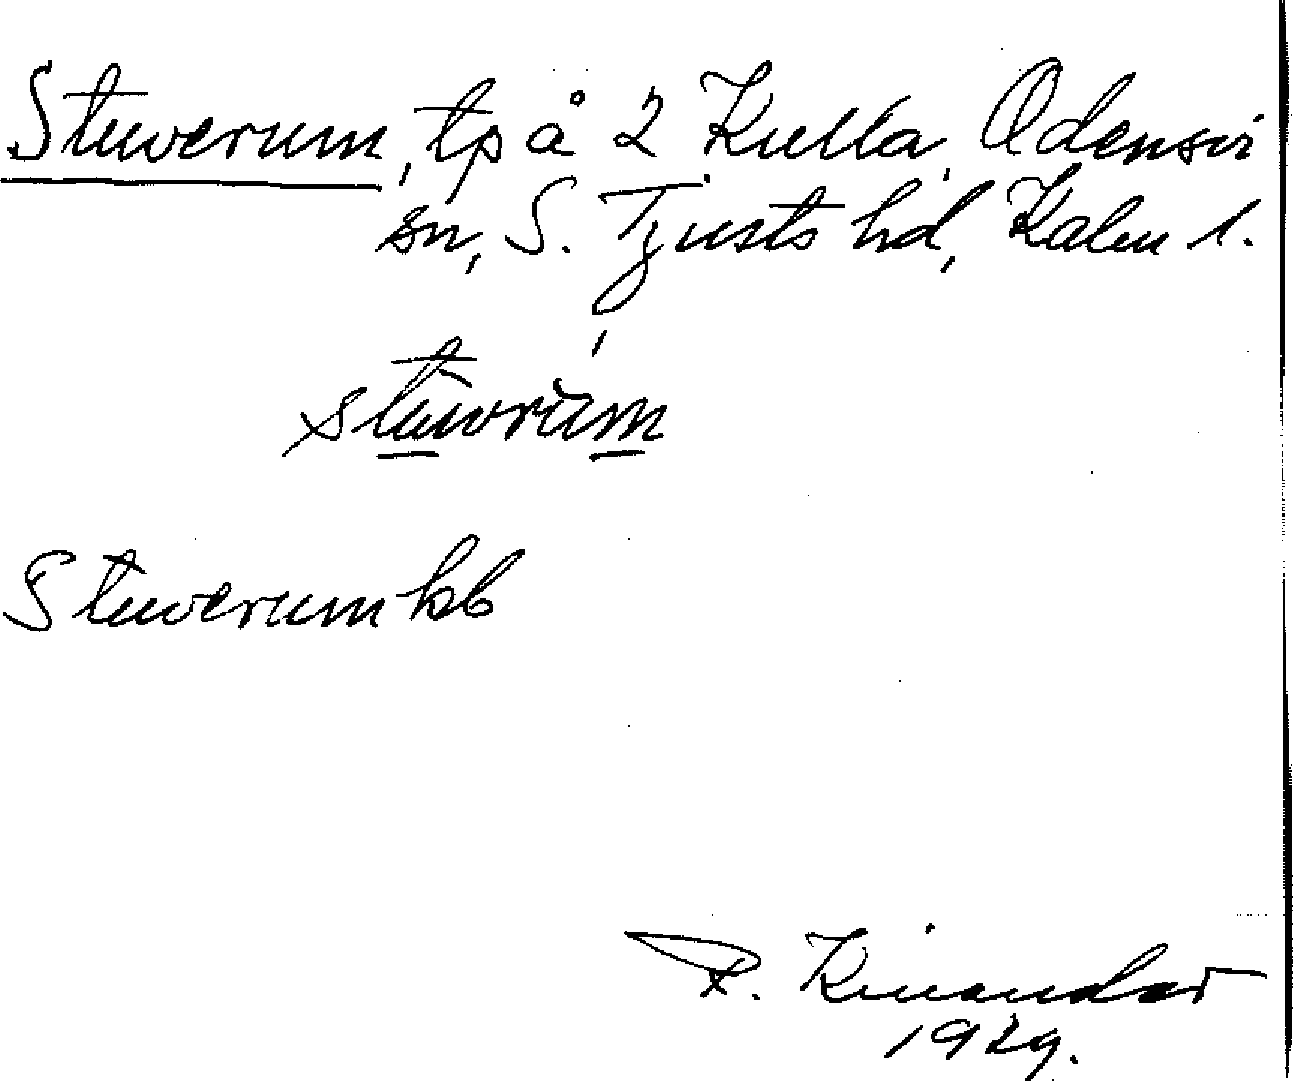 Stuverum, tp å 2 Kulla, Odensvi
sn, S. Tjusts hd, Kalm l.
stùvrùm
Stuverum kb
R. Kinander
1929.